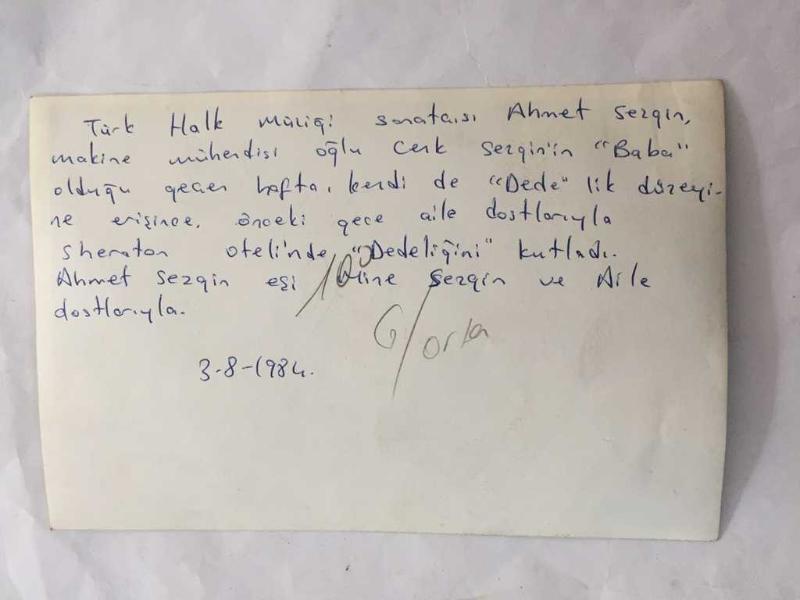 Türk Halk Müziği sanatcısı Ahmet Sezgin,
makine mühendisi oğlu Cenk Sezgin'in "Baba"
olduğu geçen hafta, kendi de "Dede" lik düzeyi-
ne erişince, önceki gece aile dostlarıyla
Sheraton oteli'nde "Dedeliğini" kutladı.
Ahmet Sezgin eşi Sezgin ve Aile
dostlarıyla.
100
6/orta
3-8-1984.